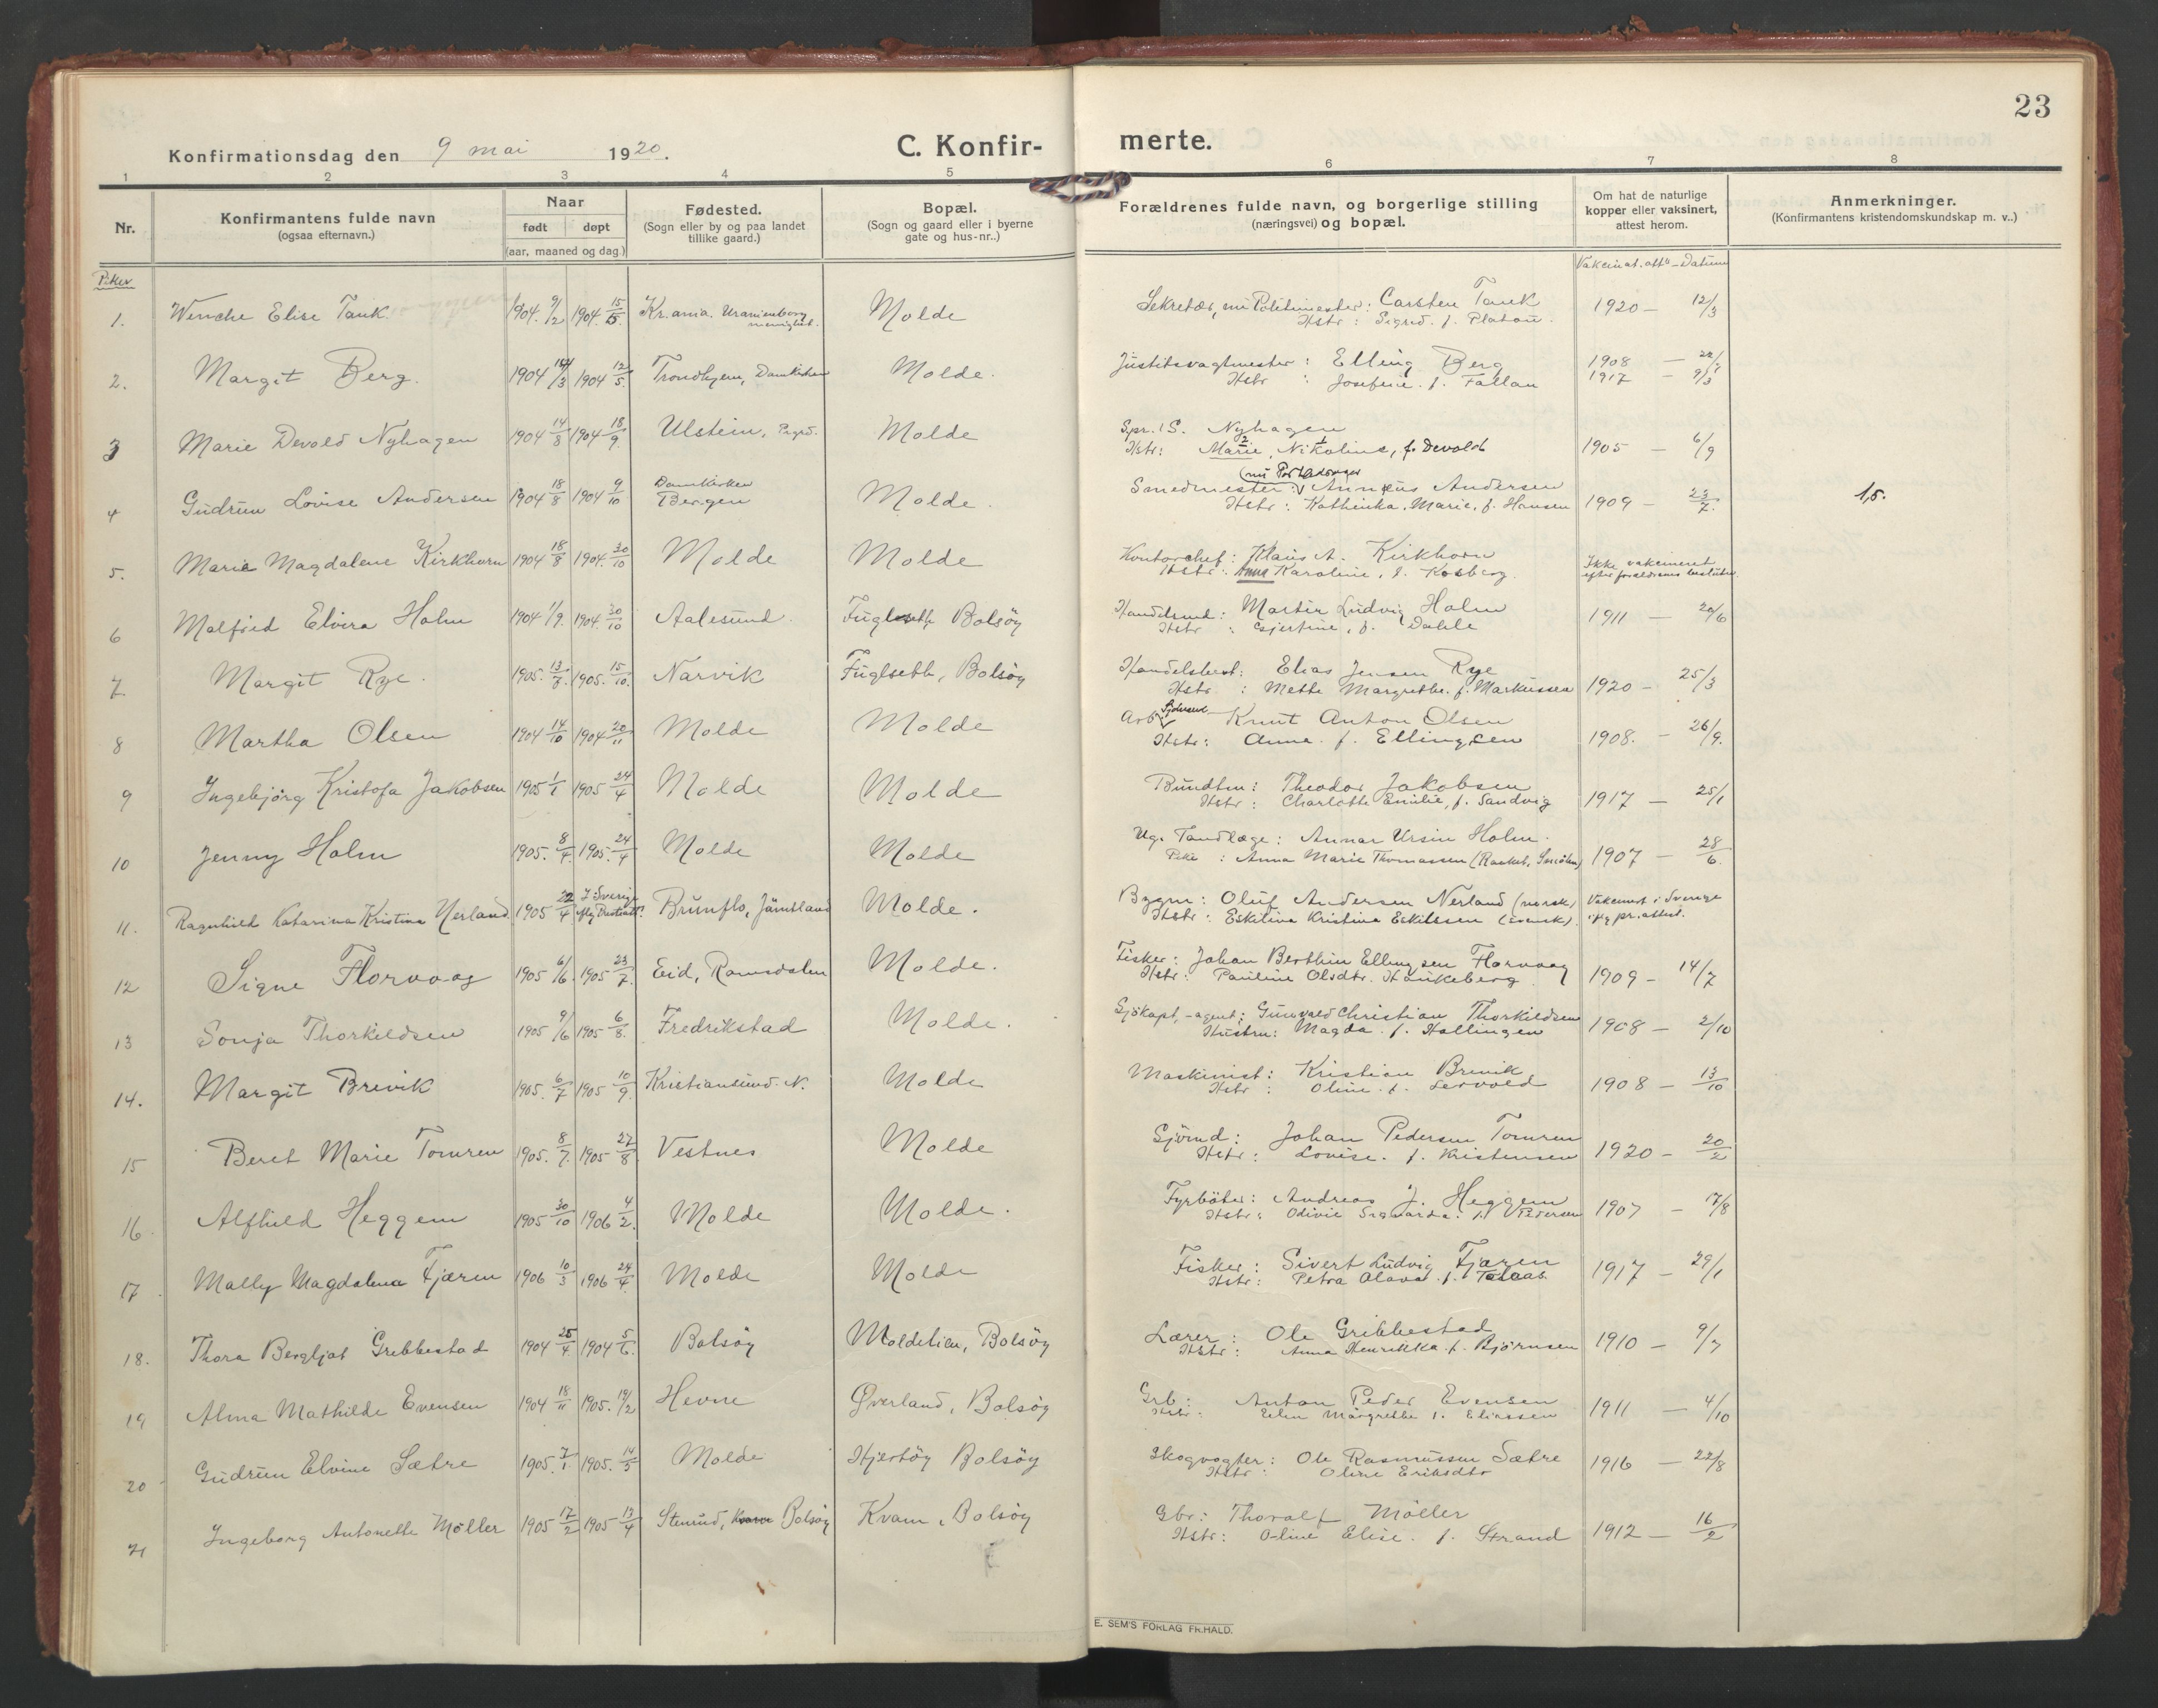 23
Konfirmationsdag den 9 mai 1920. C. Konfir- merte.
1 2 3 4 5 6 7 8
Nr.
Konfirmantens fulde navn
(ogsaa efternavn.)
Naar
født døpt
(aar, maaned og dag.)
Fødested.
(Sogn eller by og paa landet
tillike gaard.)
Bopæl.
(Sogn og gaard eller i byerne
gate og hus-nr..)
Forældrenes fulde navn, og borgerlige stilling
(næringsvei) og bopæl.
Om hat de naturlige
kopper eller vaksinert,
attest herom.
Anmerkninger.
(Konfirmantens kristendomskundskap m. v..)
Piker Vakcinat. att. - Datum
1. Wenche Elise Tank 1904. 9/2 1904. 15/5. Kr.ania. Uranienborg menighet. Molde Sekretær, nu Politimester: Carsten Tank 1920 - 12/3
Hstr: Sigrid. f. Platou.
2. Margit Berg. 1904 /3 1904 12/5. Trondhjem, Domkirken Molde. Justitsvagtmester: Elling Berg 1908 -
Hstr: Josefine. f. Fallan 1917 - 9/3
3 Marie Devold Nyhagen 1904 14/8 1904 18/9. Ulstein, Molde Spr. S. Nyhagen
Hstr: Marie, Nikoline, f. Devold 1905 - 6/9
4 Gudrun Lovise Andersen 1904 18/8 1904 9/10 Domkirken Bergen Molde. Smedmester: Andersen
Hstr: Kathinka. Marie, f. Hansen 1909 - 23/7. 1,5.
5. Marie Magdalene Kirkhorn 1904 18/8 1904. 30/10 Molde Molde Kontorchef: Klaus A. Kirkhorn Ikke vakcineret
Hstr: Anna Karoline, f. Kosberg. efter forældrenes beslutn.
6 Malfred Elvira Holm 1904 1/9. 1904. 30/10 Aalesund. Fuglseth, Bolsöy Handelsmd: Martin Ludvig Holm 1911 - 20/6
Hstr: Gjertine, f. Dahle
7 Margit Rye. 1905. 13/8. 1905. 15/10. Narvik Fuglseth, Bolsöy Handelsbest: Elias Jensen Rye
Hstr: Mette Margrethe. f. Markussen 1920 - 25/3
8 Martha Olsen 1904 14/10 1904 20/11 Molde Molde Arb. Sjömand Knut Anton Olsen
Hstr: Anna. f. Ellingsen 1908. - 26/9.
9 Ingebjörg Kristofa Jakobsen 1905 1/1 1905 24/4 Molde Molde Bundtm: Theodor Jakobsen
Hstr: Charlotte Emilie, f. Sandvig 1917 - 25/1
10 Jenny Holm 1905. 8/4 1905. 24/4 Molde Molde Ug. Tandlæge: Annar Ursin Holm.
Pike: Anna Marie Thomassen 1907 - 28/6.
11. Ragnhild Katarina Kristina Nerland 1905 22/4 I Sverige Brunflo, Jämtland Molde. Bygm: Oluf Andersen Nerland (norsk) Vakcinert i Sverige
Hstr: Eskilina Kristina Eskilssen (svensk). pr. attest.
12 Signe Florvaag 1905 6/6. 1905 23/7. Eid, Romsdalen Molde. Fisker: Johan Berthin Ellingsen Florvaag
Hstr: Pauline Olsdtr. Haukeberg. 1909 - 14/7
13 Sonja Thorkildsen 1905 9/6 1905 6/8. Fredrikstad Molde. Sjökapt, -agent: Gunvald Christian Thorkildsen
Hustru: Magda. f. Hallingen 1908 - 2/10
14. Margit Brevik 1905. 6/7 1905 10/9. Kristiansund. N. Molde Maskinist: Kristian Brevik
Hstr: Oline. f. Lervold 1908 - 13/10
15 Beret Marie Tomren 1905. 8/7. 1905 27/8. Vestnes Molde Sjömd: Johan Pedersen Tomren
Hstr: Lovise. f. Kristensen 1920 - 20/2
16. Alfhild Heggem 1905 30/10 1906 4/2. Molde Molde. Fyrböter: Andreas J. Heggem
Hstr: Odivie f. Pedersen 1907 - 7/8
17 Mally Magdalena Fjæren 1906 10/3 1906 24/4. Molde Molde Fisker: Sivert Ludvig Fjæren
Hstr: Petra Olava. f. 1917 - 29/1
18. Thora Bergljot Gribbestad 1904 25/4. 1904 5/6. Bolsöy Moldelien, Bolsöy Lærer: Ole Gribbestad
Hstr: Anna Henrikka. f. Björnsen 1910 - 9/7
19 Alma Mathilde Evensen 1904 18/11 1905. 19/2 Hevne Øverland, Bolsöy Grb: Anton Peder Evensen
Hstr: Elen Margrethe f. Eliassen 1911 - 4/10
20 Gudrun Elvine Sætre 1905. 7/1. 1905. 14/5 Molde Hjertöy Bolsöy Skogvogter: Ole Rasmussen Sætre
Hstr: Oline Eriksdtr 1916 - 22/8
21 Ingeborg Antonette Möller 1905 17/2 1905 13/4 Stenrud, Bolsöy Kvam, Bolsöy Gbr: Thoralf Möller
Hstr: Oline Elise. f. Strand 1912 - 16/2
E. SEM'S FORLAG FR.HALD.